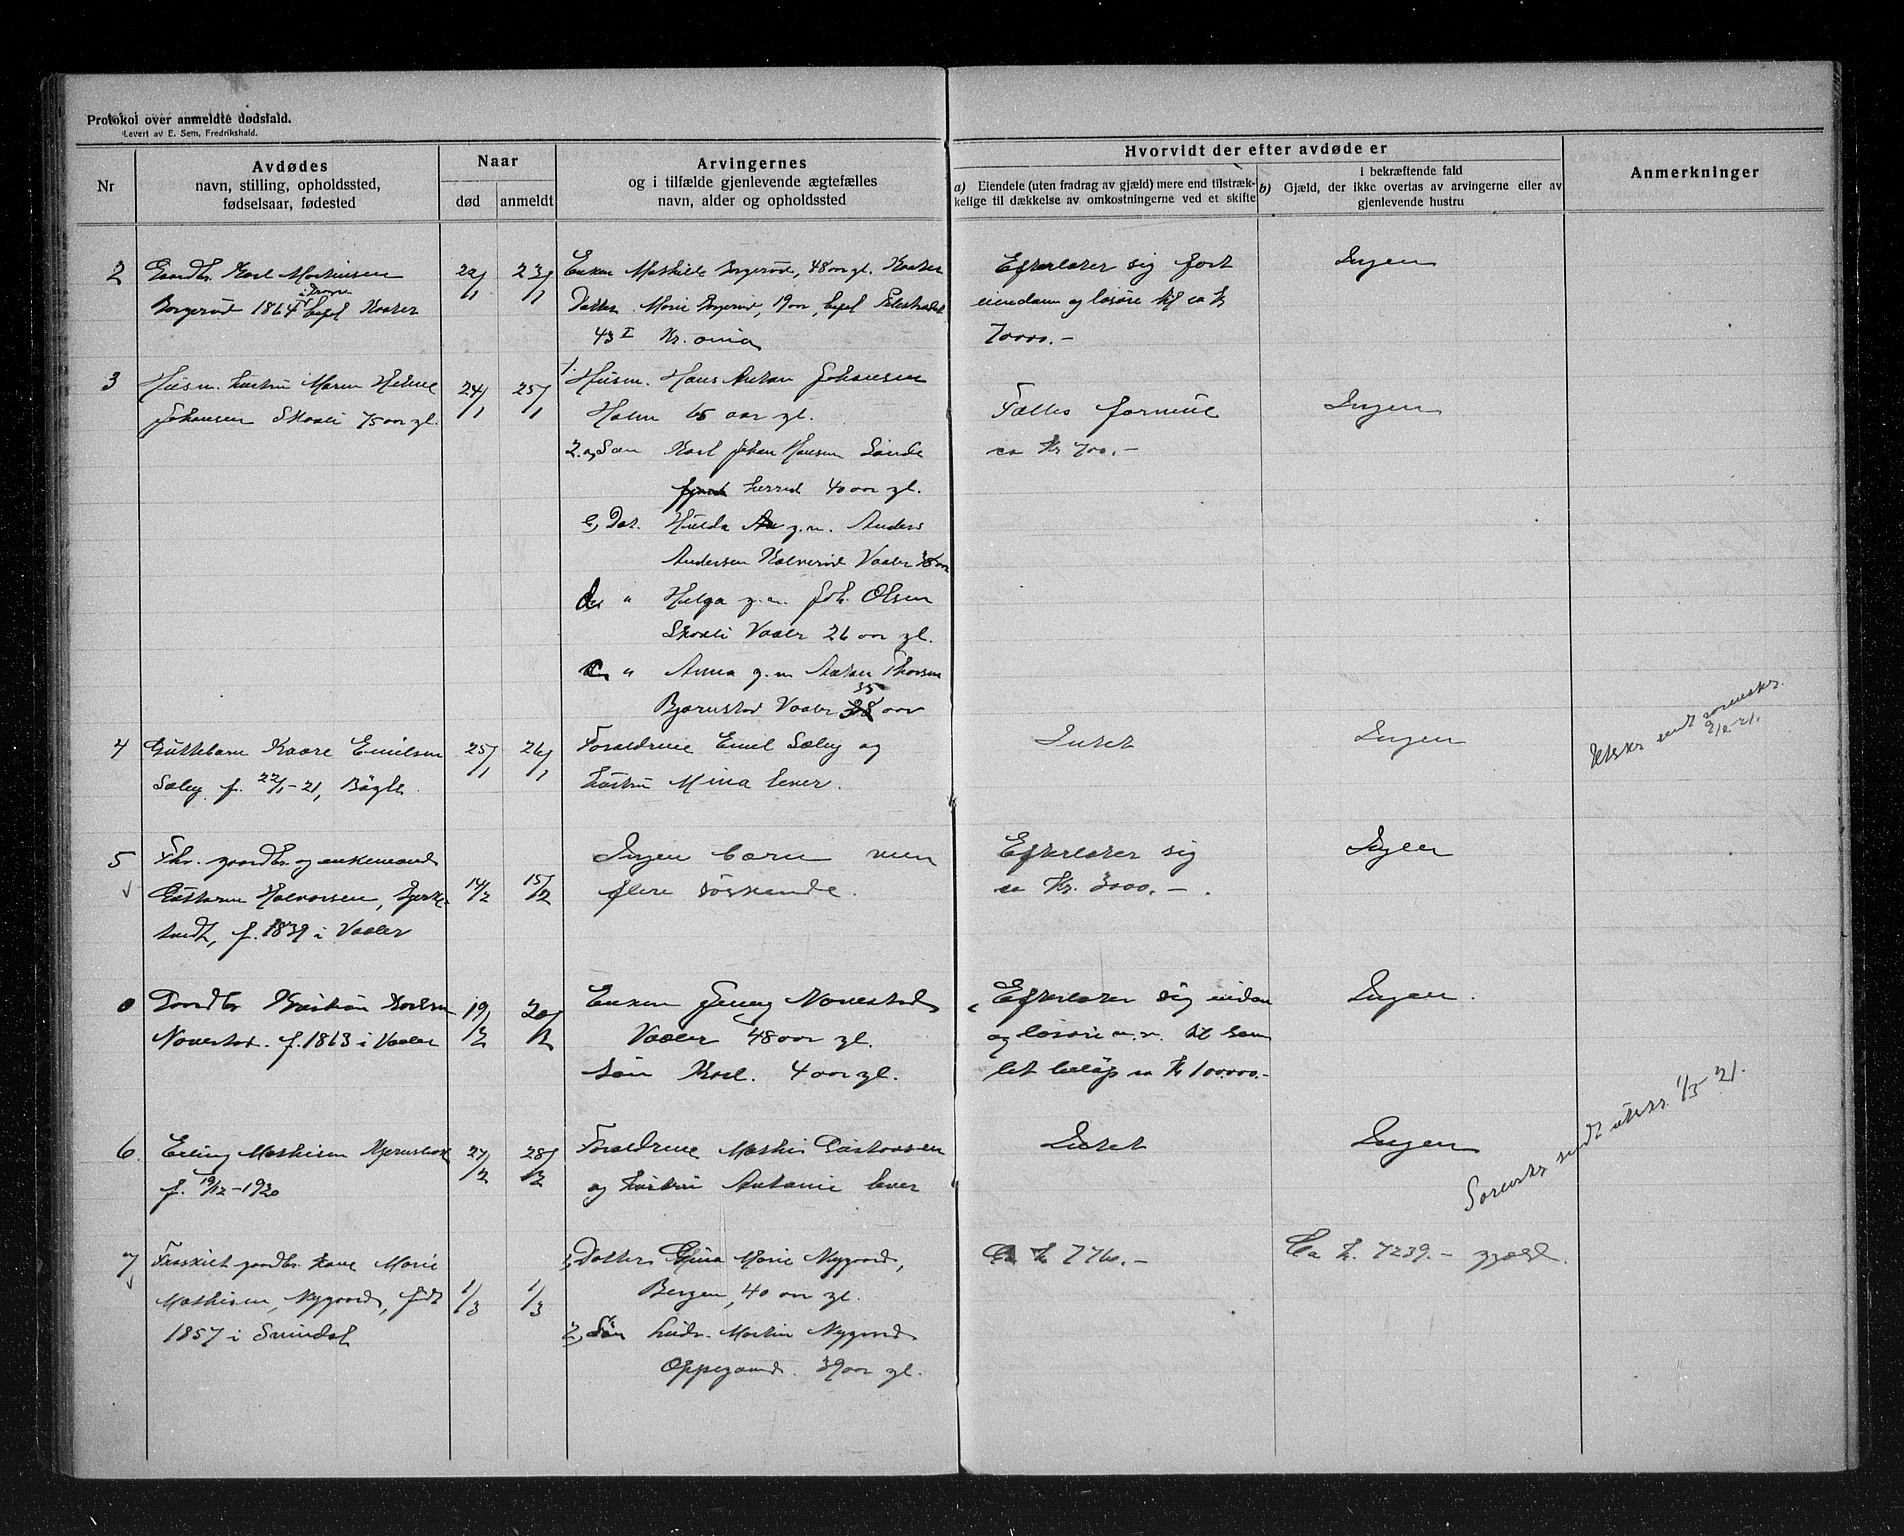 Protokol over anmeldte dødsfald.
Levert av E. Sem, Fredrikshald.
Nr
Avdødes
navn, stilling, opholdssted,
fødselsaar, fødested
Naar
død
anmeldt
Arvingernes
og i tilfælde gjenlevende ægtefælles
navn, alder og opholdssted
Hvorvidt der efter avdøde er
a) Eiendele (uten fradrag av gjæld) mere end tilstræk-
kelige til dækkelse av omkostningerne ved et skifte
i bekræftende fald
b) Gjæld, der ikke overtas av arvingerne eller av
gjenlevende hustru
Anmerkninger
2
Gaardbr. Karl Mathisen
Borgerød 1864
22/1
23/1
Enken Mathilde Borgerød, 48 aar gl.
Datter Marie Borgerud, 19 aar,
43 I Kr.ania
Efterlater sig fast
eiendom og løsøre til ca kr
70000.-
Ingen
3
Husm. hustru Maren Heline
Johansen Skaali 75 aar gl.
24/1
25/1
1. Husm. Hans Anton Johansen
Holm 65 aar gl.
2. a, Søn Karl Johan Hansen Sande
herred 40 aar gl.
Dat. Hulda g.m. Anders
Andersen Kalverød Vaaler 38 aar
" Helga g.m. Joh. Olsen
Skaali Vaaler 26 aar gl.
" Anna g.m. Anton Thorsen
35
Bjørnstad Vaaler 38 aar
Fælles formue
ca Kr 700.-
Ingen
4
Guttebarn Kaare Emilsen
Sæby f. 22/1-21, Bøgle
25/1
26/1
Forældrene Emil Sæby og
hustru Mina lever.
Intet
Ingen
Utskr. sendt sorenskr.
2/2 21.
5
Fhv. gaardbr. og enkemand
Guttorm Halvorsen,
f. 1839 i Vaaler
14/2
15/2
Ingen barn men
flere søskende.
Efterlater sig
ca Kr. 3000.-
Ingen
0
Gaardbr Kristian Karlsen
Navestad. f. 1863 i Vaaler
19/2
20/2
Enken Jenny Navestad
Vaaler 48 aar gl.
Søn Karl. 4 aar gl.
Efterlater sig eiendom
og løsøre m.v. til sam
let beløp ca Kr 100000.-
Ingen.
6.
Erling Mathisen
f. 19/12-1920
27/2
28/2
Forældrene Mathis Gustavsen
og hustru Antonie lever
Intet
Ingen
Sorenskr. sendt utskr. 1/3 21.
7
Fraskilt gaardbr. kone Marie
Mathisen, Nygaard, født
1857 i Svindal
1/3
1/3
1, Datter Gina Marie Nygaard,
Bergen, 40 aar gl.
2, Søn Ludv. Martin Nygaard
Oppegaard. 39 aar gl.
Ca kr 7760.-
Ca kr. 7239.- gjæld.